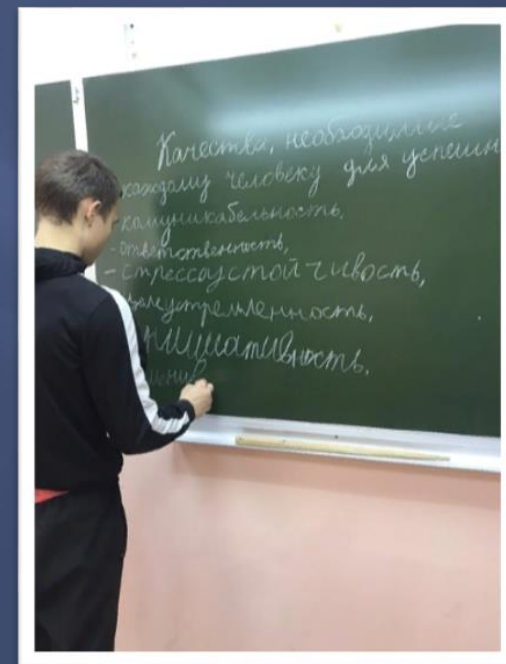 Качества, необходимые
каждому человеку для успешн
- комуникабельность,
- ответственность,
- стрессоустойчивость,
целеустремленность,
инициативность.